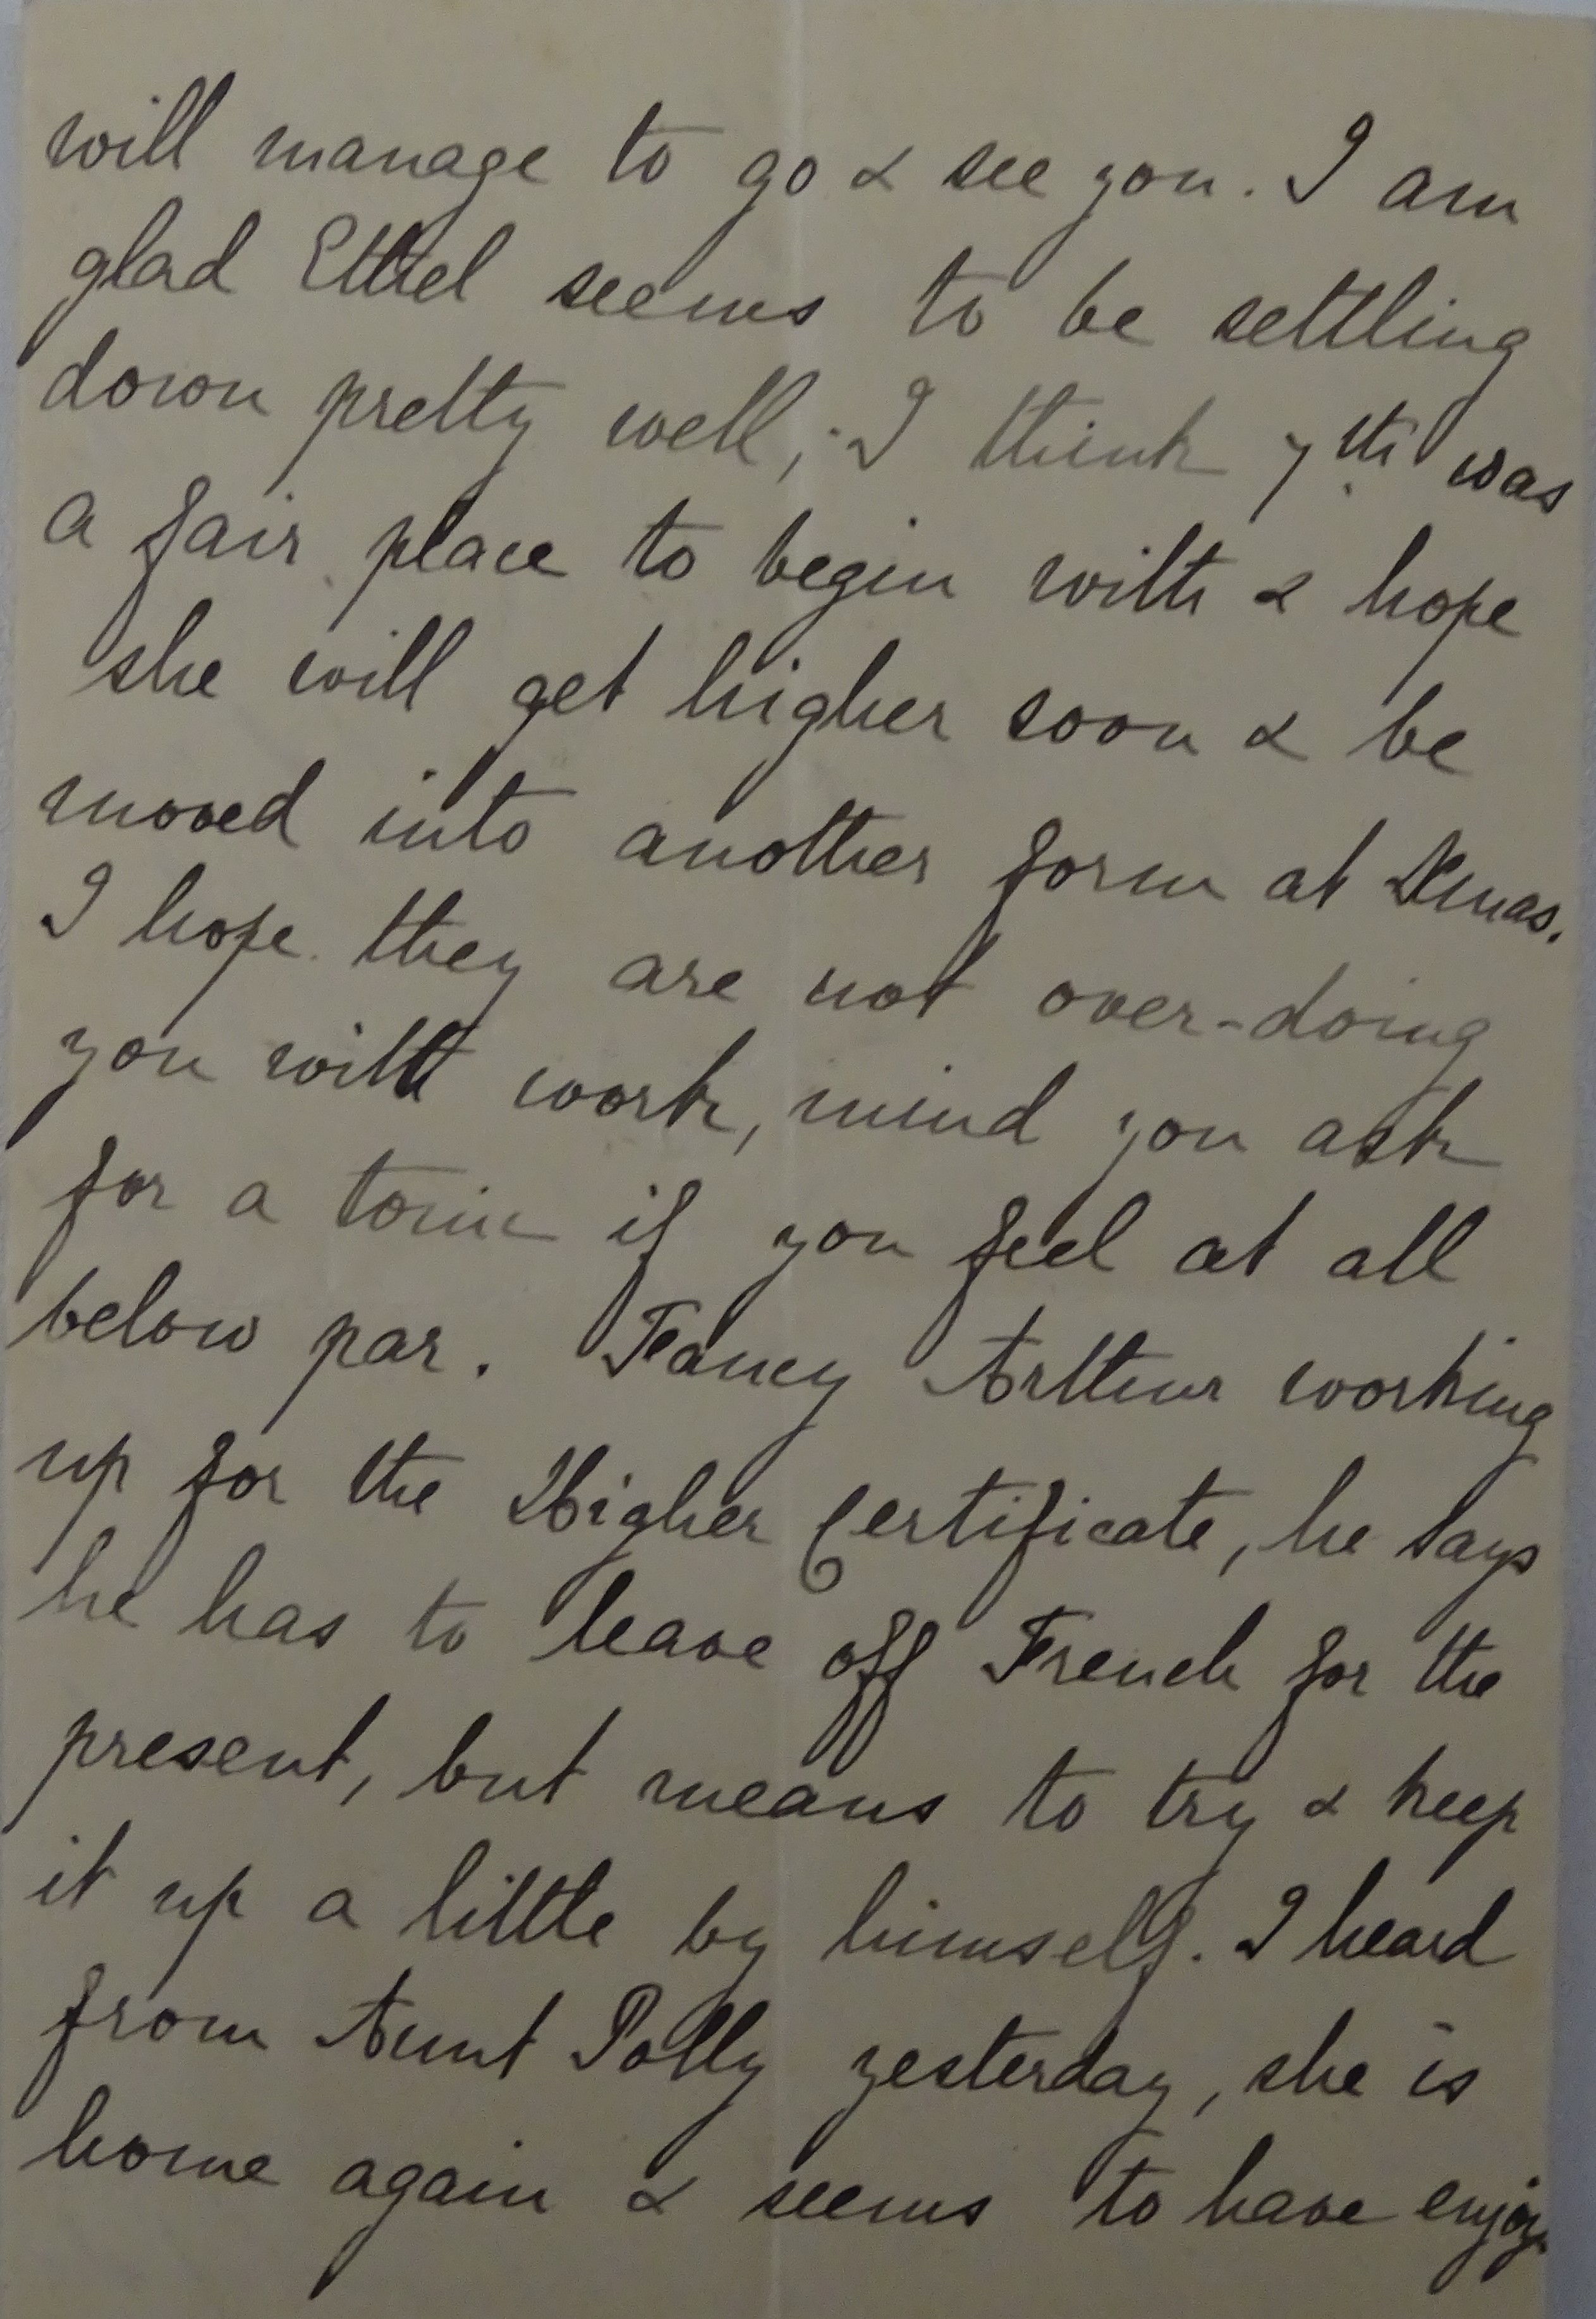 will manage to go & see you. I am
glad Ethel seems to be settling
down pretty well; I think 7th was
a fair place to begin with & hope
she will get higher soon & be
moved into another form at Xmas.
I hope they are not over-doing
you with work, mind you ask
for a tonic if you feel at all
below par. Fancy Arthur working
up for the Higher Certificate, he says
he has to leave off French for the
present, but means to try & keep
it up a little by himself. I heard
from Aunt Polly yesterday, she is
home again & seems to have enjoy